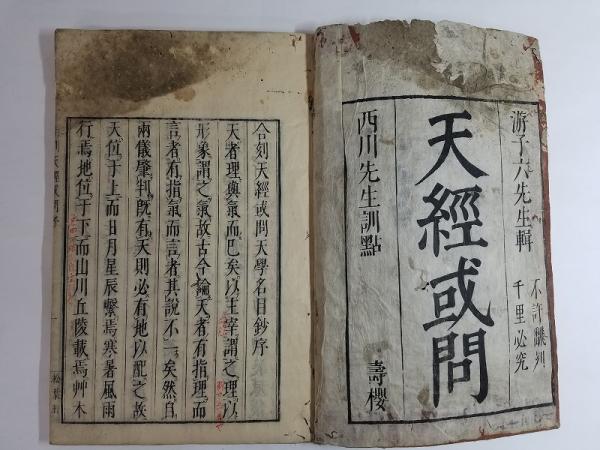 不許飜刻
千里必究
游子六先生輯
天經或問
西川先生訓點
壽櫻
合刻天經或問天學名目鈔序
天者理與氣而已矣以主宰謂之理以
形象謂之氣故古今論天者有指理而
言者有指氣而言者其說不一矣然自
兩儀肇判既有天則必有地以配之故
天位于上而日月星辰繫焉寒暑風雨
行焉地位于下而山川丘陵載焉艸木
天經或問序